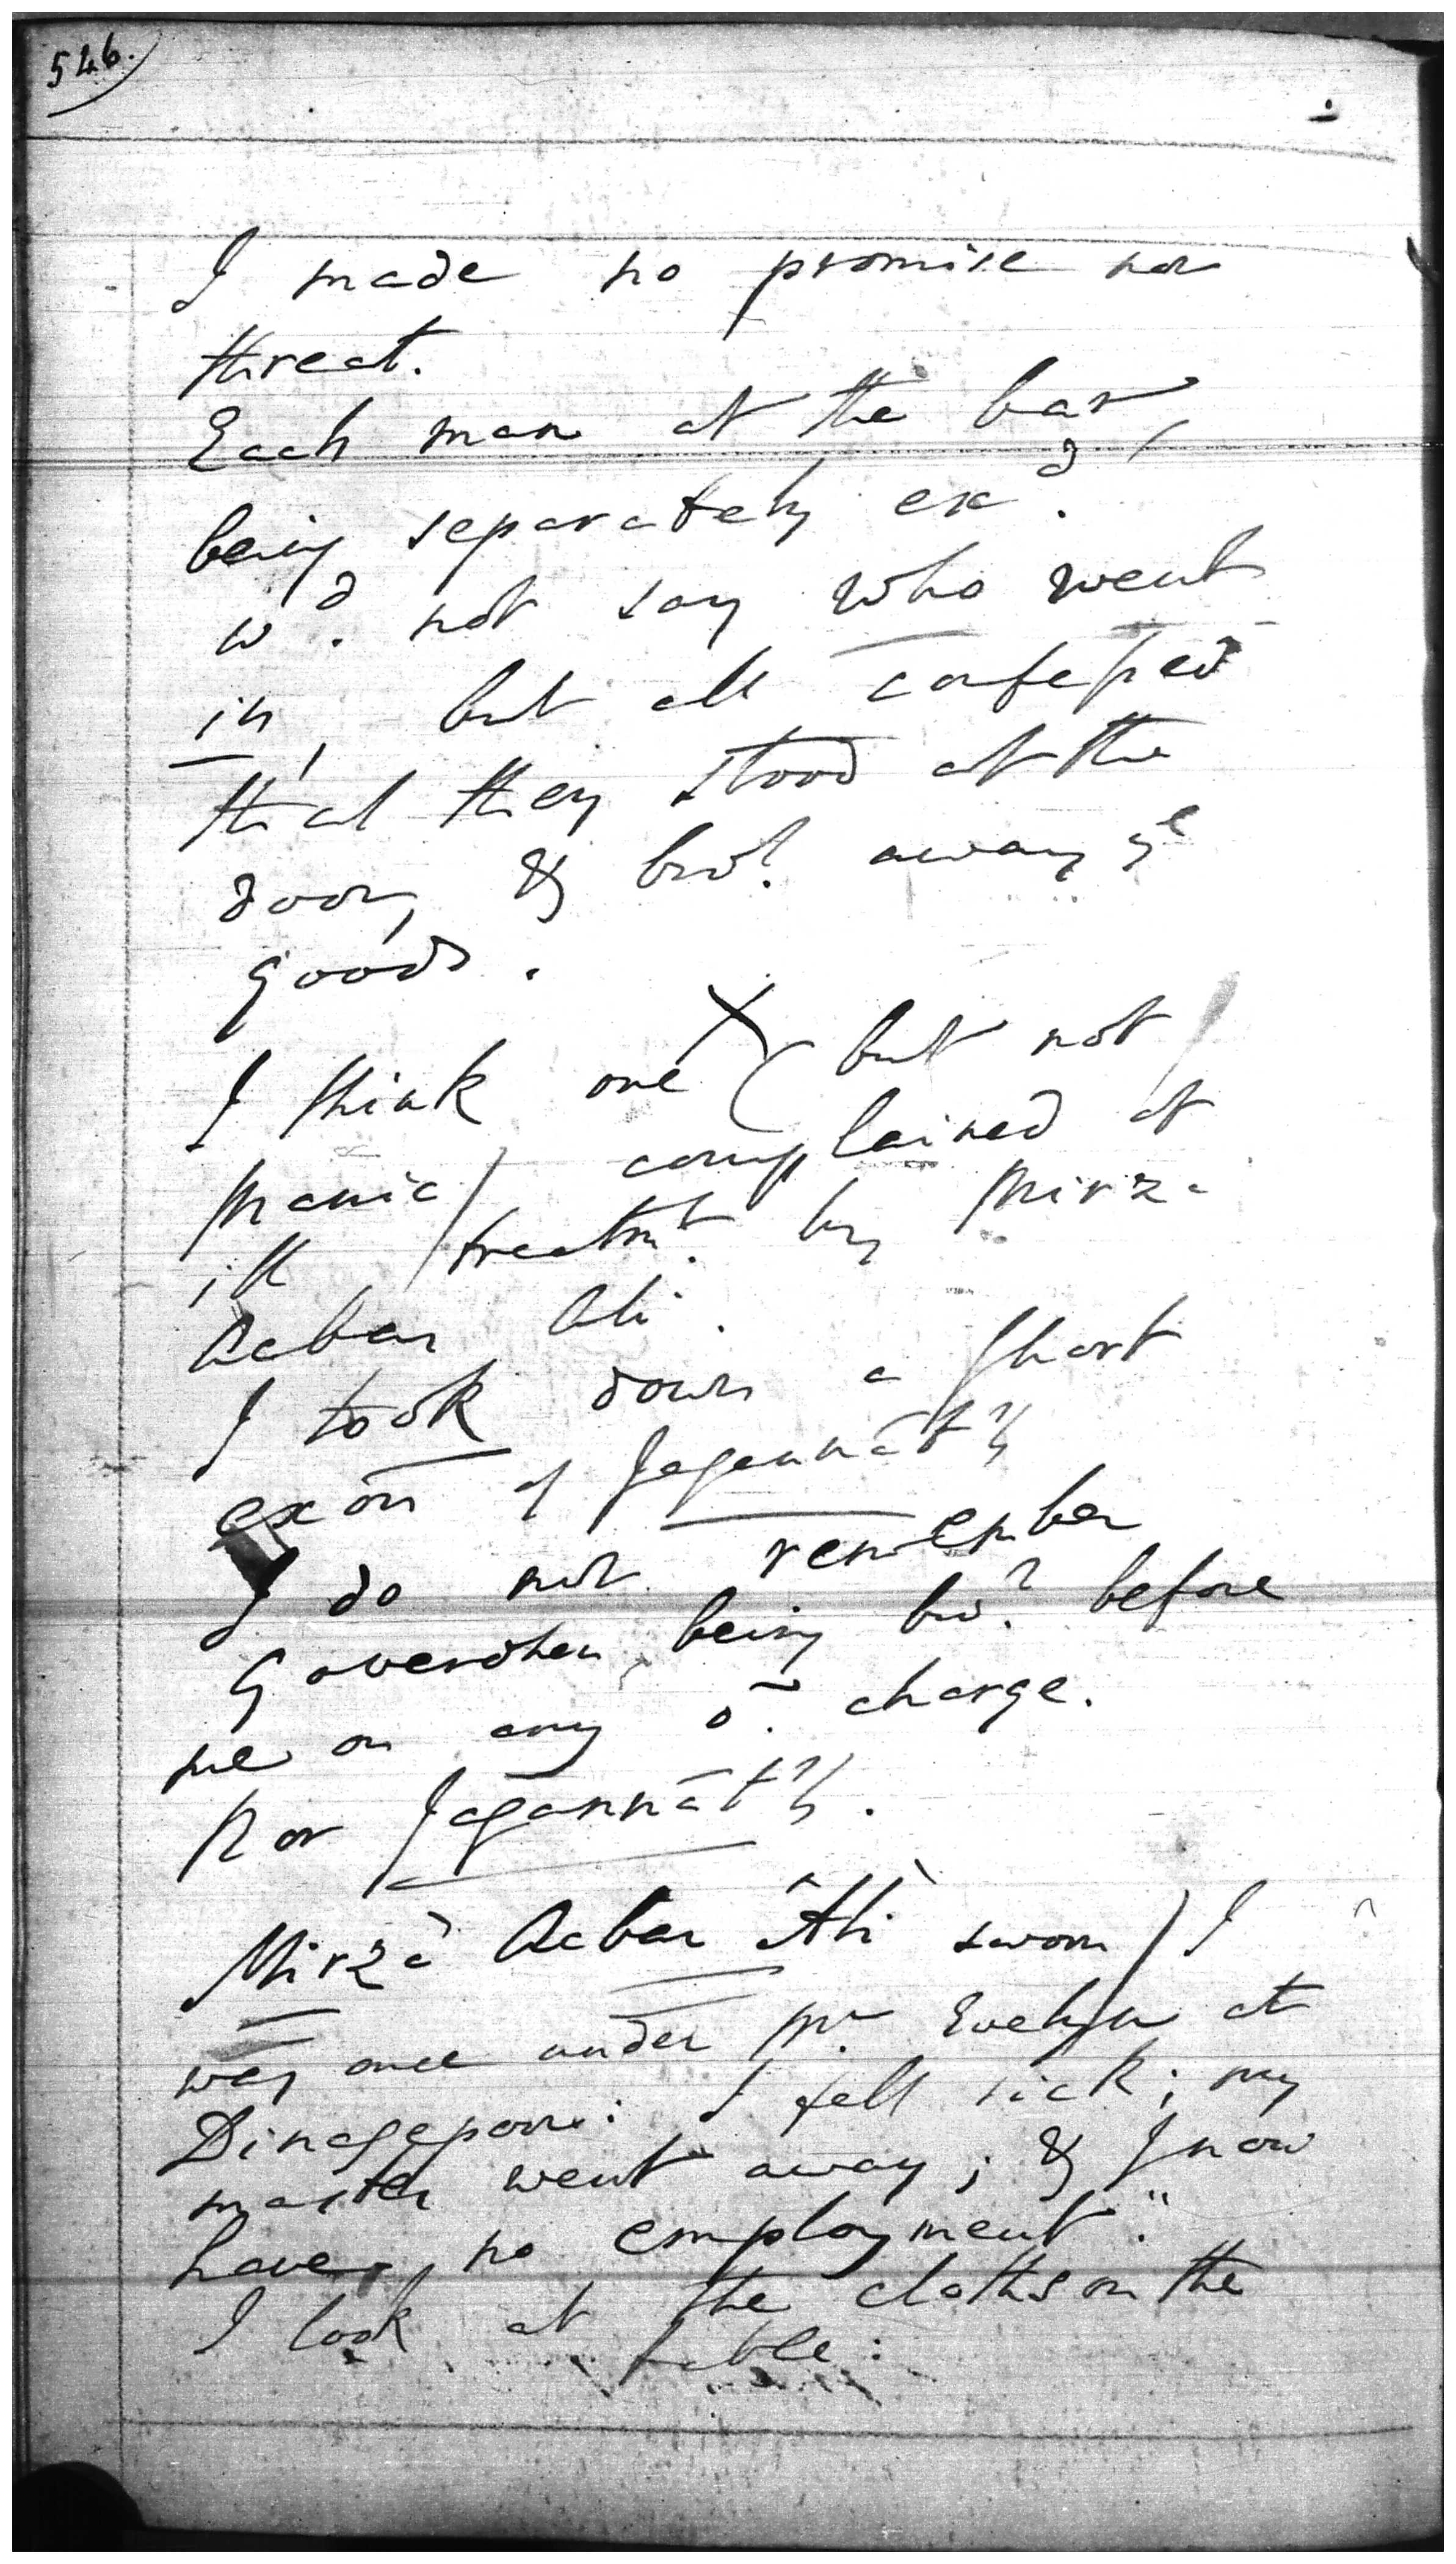 546.
I made no promise nor
threat.
Each man at the bar,
being separately exd.
wd. not say who went
in, but all confessed
that they stood at the
door, & brot. away ye
goods.
I think one (but not
Manic) complained of
ill treatmt. by Mirza
Acbar Ali.
I took down a short
exōn of Jagannāth
I do not remember
Goverdhen being brot. before
me on any õ. charge.
Nor Jagannāth.
Mirzà Acbar Ali sworn) I
was once under Mr. Evelyn at
Dinagepore: I fell sick; my
master went away; & I now
have no employment."
I look at the cloths on the
table: